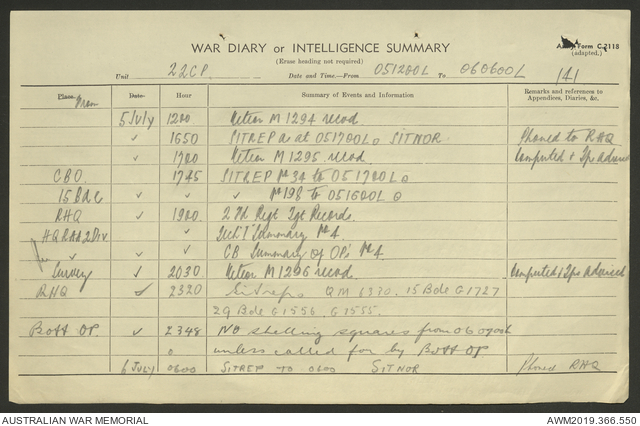 Army Form C.2118
WAR DIARY or INTELLIGENCE SUMMARY (adapted.)
(Erase heading not required)
Unit 22CP. Date and Time.—From 051200L To 060600L 141
Place From Date Hour Summary of Events and Information Remarks and references to Appendices, Diaries, &c.
5 July 1200 Meteor M 1294 recd.
✓ 1650 SITREP as at 051700L o SITNOR Phoned to RHQ
✓ 1700 Meteor M 1295 recd. Computed & Tps advised
CBO. ✓ 1745 SITREP Nº 34 to 051700L o
15 Bde ✓ ✓ ✓ Nº 198 to 051600L o
RHQ ✓ 1900. 2 Fd Regt Tgt Records.
HQ RAA 2 Div ✓ Sum'y Nº 4.
✓ ✓ CB Summary of OP's Nº 4.
Survey ✓ 2030 Meteor M 1296 recd. Computed & Tps advised
RHQ ✓ 2320 Sitreps QM 6330. 15 Bde G1727
29 Bde G1556. G1555.
Bott OP. ✓ 2348 No shelling squares from
unless called for by Bott OP
6 July 0600 SITREP TO 0600 SITNOR Phoned RHQ
AUSTRALIAN WAR MEMORIAL AWM2019.366.550